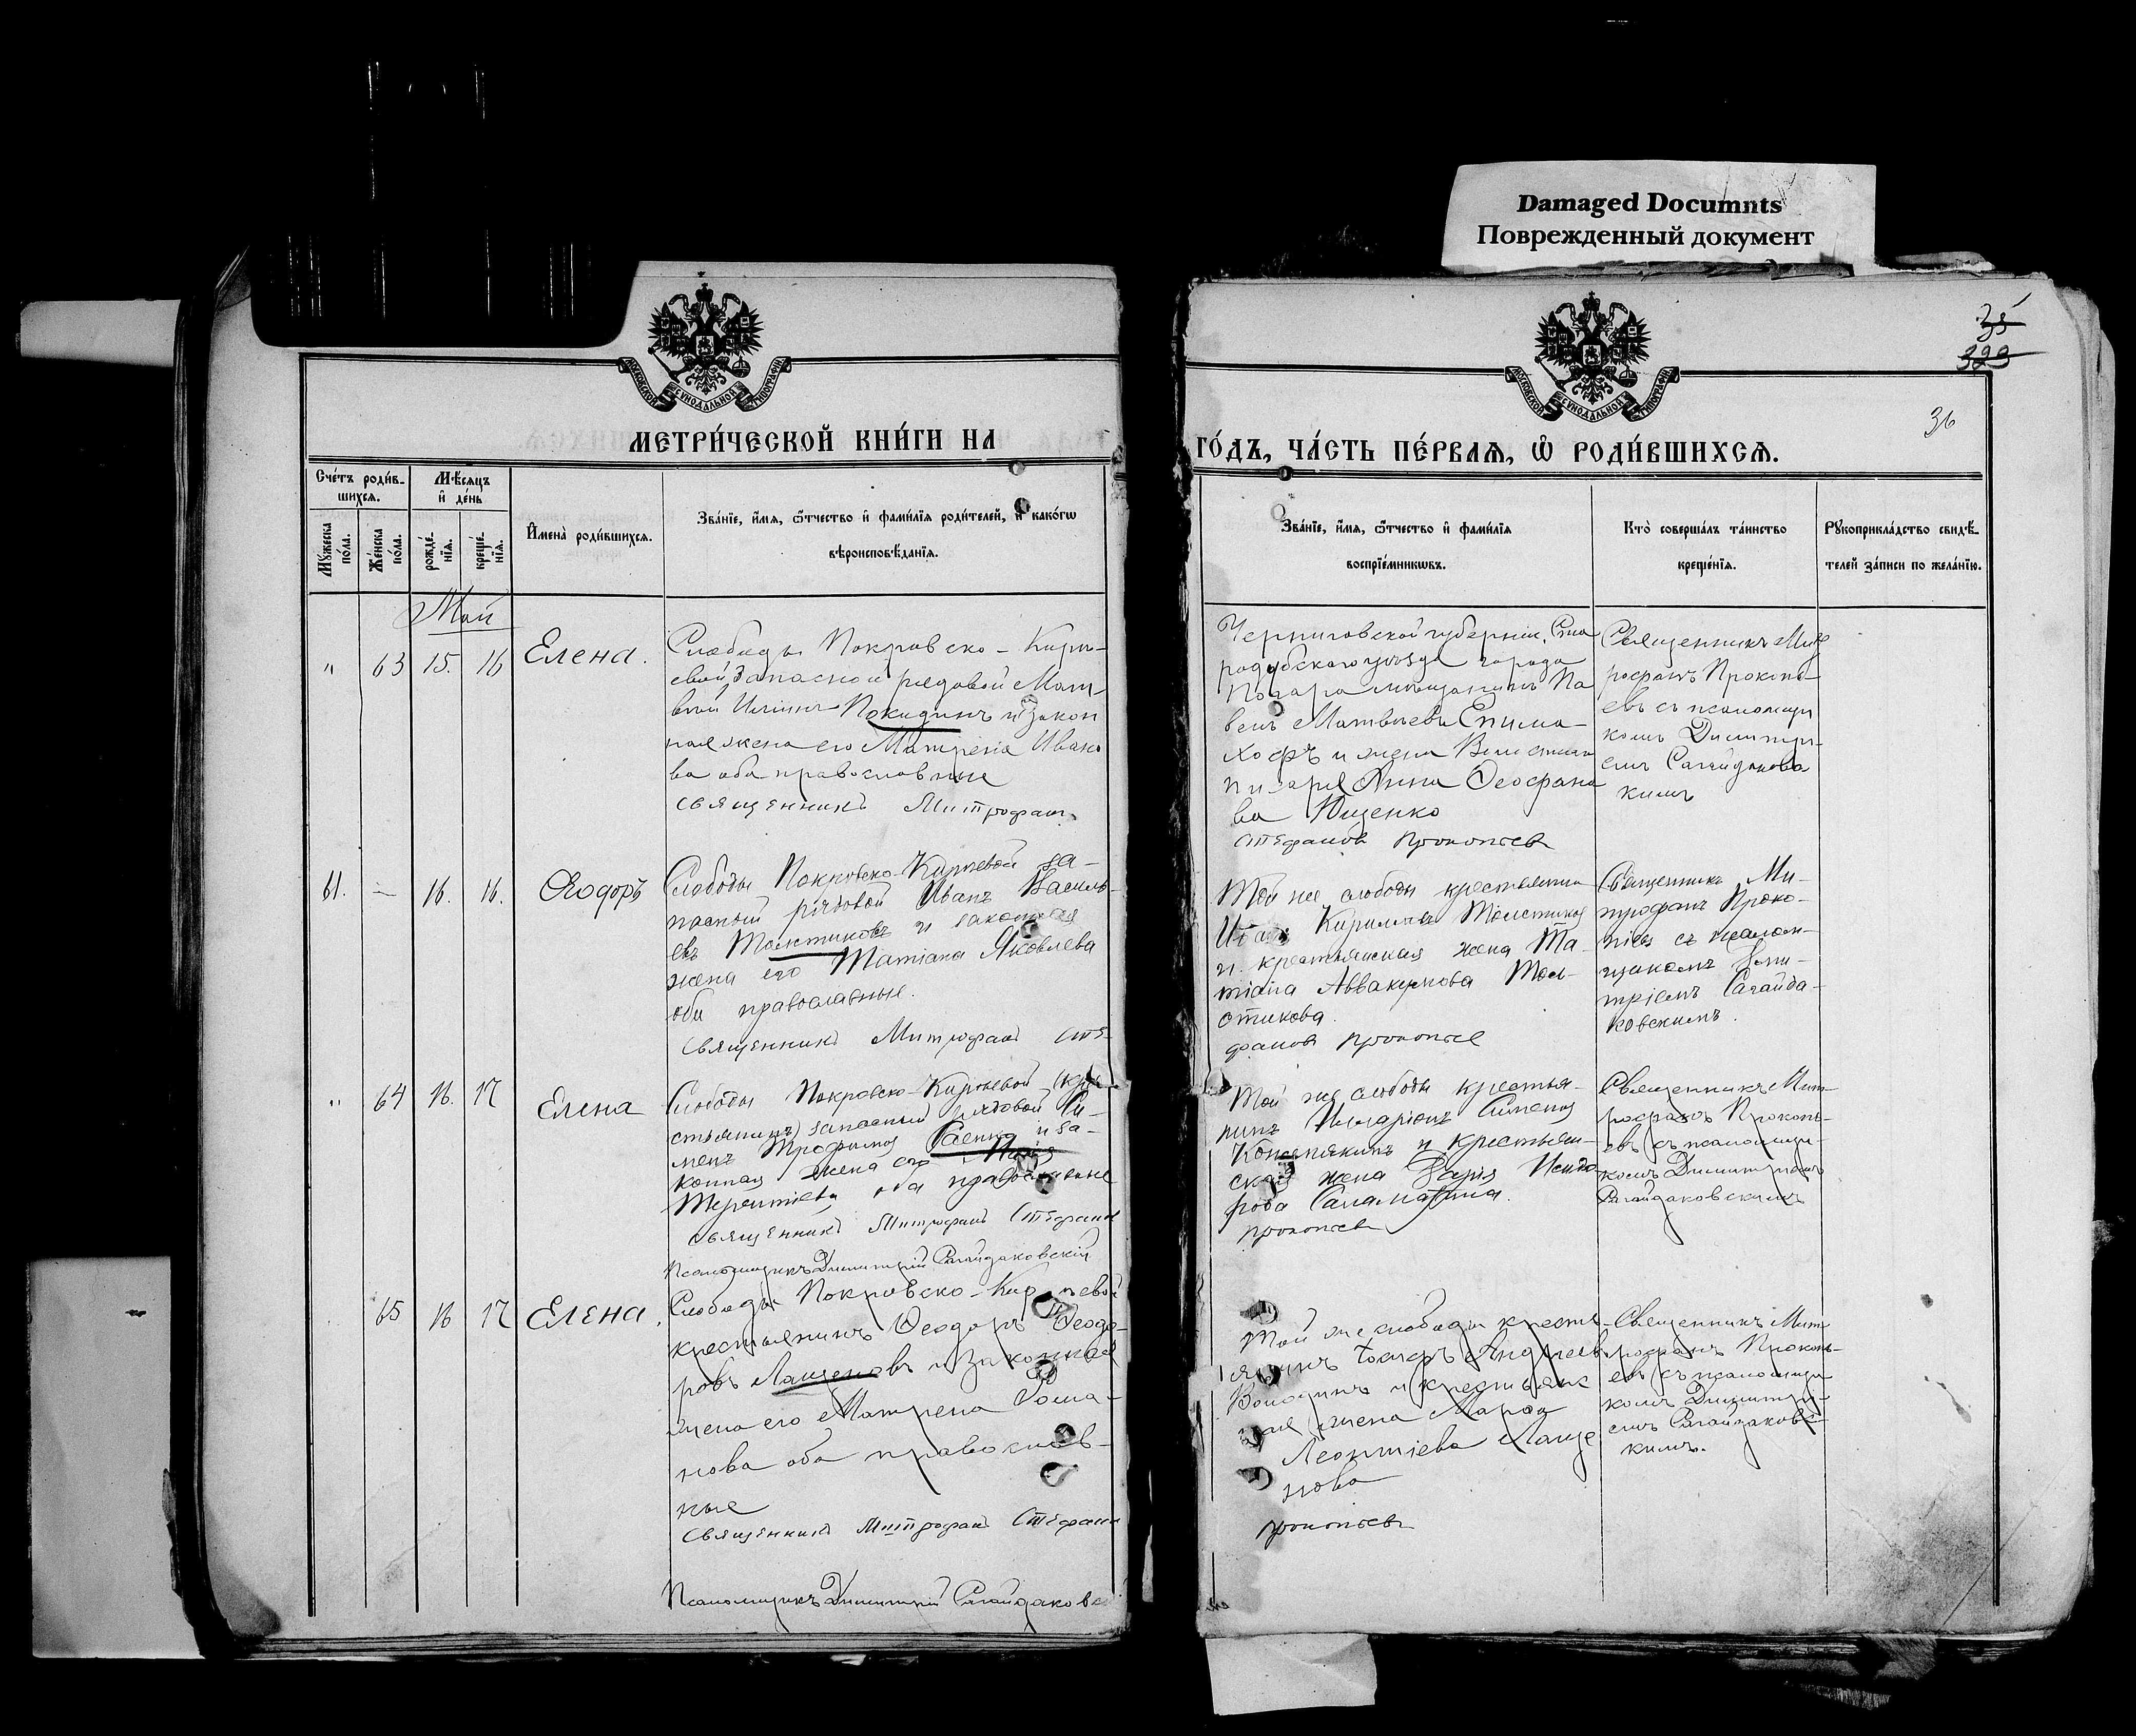 Damaged Documnts
Поврежденный документ
35
323
36
МОСКОВСКОЙ СѴНОДАЛЬНОЙ ТИПОГРАФІИ
МОСКОВСКОЙ СѴНОДАЛЬНОЙ ТИПОГРАФІИ
МЕТРИ́ЧЕСКОЙ КНИ́ГИ НА
ГО́ДЪ, ЧА́СТЬ ПЕ́РВАѦ, Ѡ҆ РОДИ́ВШИХСѦ.
Сче́тъ роди́в-
шихсѧ.
Мꙋ́жеска по́ла.
Же́нска по́ла.
Мѣ́сѧцъ
и҆ де́нь
рожде́-
нїѧ.
креще́-
нїѧ.
И҆мена̀ роди́вшихсѧ.
Зва́нїе, и҆́мѧ, ѻ҆́тчество и҆ фами́лїѧ роди́телей, и҆ како́гѡ
вѣроисповѣ́данїѧ.
Зва́нїе, и҆́мѧ, ѻ҆́тчество и҆ фами́лїѧ
воспрїе́мникѡвъ.
Кто̀ соверша́лъ та́инство
креще́нїѧ.
Рꙋкоприкла́дство свидѣ́-
телей за́писи по жела́нїю.
Май
" 63 15. 16 Елена.
Слободы Покровско-Кирѣ-
евой, запасной рядовой Мат-
вѣй Ильинъ Покидинъ и закон
ная жена его Матрена Ивано
ва оба православные
священникъ Митрофанъ
Черниговской губерніи, Ста
родубскаго уѣзда города
Погара мѣщанинъ Па
велъ Матвѣевъ Епима-
ховъ и жена
писаря Анна Ѳеофано
ва Ющенко
Стефановъ Прокопьев
Священникъ Мит
рофанъ Прокопь-
евъ съ псаломщи
комъ Димитрі-
емъ Сагайдаковс
кимъ
61. — 16. 16. Ѳеодоръ
Слободы Покровско-Кирѣевой за-
пасный рядовой Иванъ Василь-
евъ Толстиковъ и законная
жена его Татіана Яковлева
оба православные.
Священникъ Митрофанъ Сте-
Той же слободы крестьянинъ
Кирилловъ Толстиков
и крестьянская жена Та-
тіана Аввакумова Тол-
стикова.
фановъ Прокопьев
Священникъ Ми-
трофанъ Проко-
пьевъ съ псалом-
щикомъ Дими-
тріемъ Сагайда-
ковскимъ.
" 64 16. 17 Елена
Слободы Покровско-Кирѣевой (кре-
стьянинъ) запасный рядовой Си-
менъ Трофимов и за-
конная жена его
Терентіева, оба православные
Священникъ Митрофанъ Стефанов
Псаломщикъ Димитрій Сагайдаковскій
Той же слободы крестья-
нинъ Илларіонъ Симеонов
и крестьян-
ская жена Дарія Исидо-
рова
Прокопьев
Священникъ Мит-
рофанъ Прокопь-
евъ съ псаломщи-
комъ Димитріемъ
Сагайдаковскимъ
65 16 17 Елена.
Слободы Покровско-Кирѣевой
крестьянинъ Ѳеодоръ Ѳеодо-
ровъ Лащеновъ и законная
жена его Матрена Рома-
нова оба православ-
ные
Священникъ Митрофанъ Стефанов
Псаломщикъ Димитрій Сагайдаковс
Той же слободы кресть-
янинъ Андреевъ
и крестьянс
кая жена
Леонтіева Лаще
нова
Прокопьев
Священникъ Мит
рофанъ Прокопь-
евъ съ псаломщи
комъ Димитрі-
емъ Сагайдаковс-
кимъ.